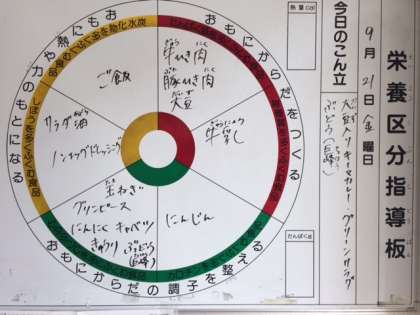 栄養区分指導板
9月21日金曜日
今日のこん立
大豆入りキーマカレー・グリーンサラダ
ぶどう(巨峰)
熱量Cal
たんぱく質
おもにからだをつくる
牛ひき肉
豚ひき肉
大豆
牛乳
おもに熱や力のもとになる
ご飯
サラダ油
ノンエッグドレッシング
しぼうを多くふくむ食品
おもにからだの調子を整える
にんじん
玉ねぎ
グリンピース
にんにく キャベツ
きゅうり ぶどう
(巨峰)